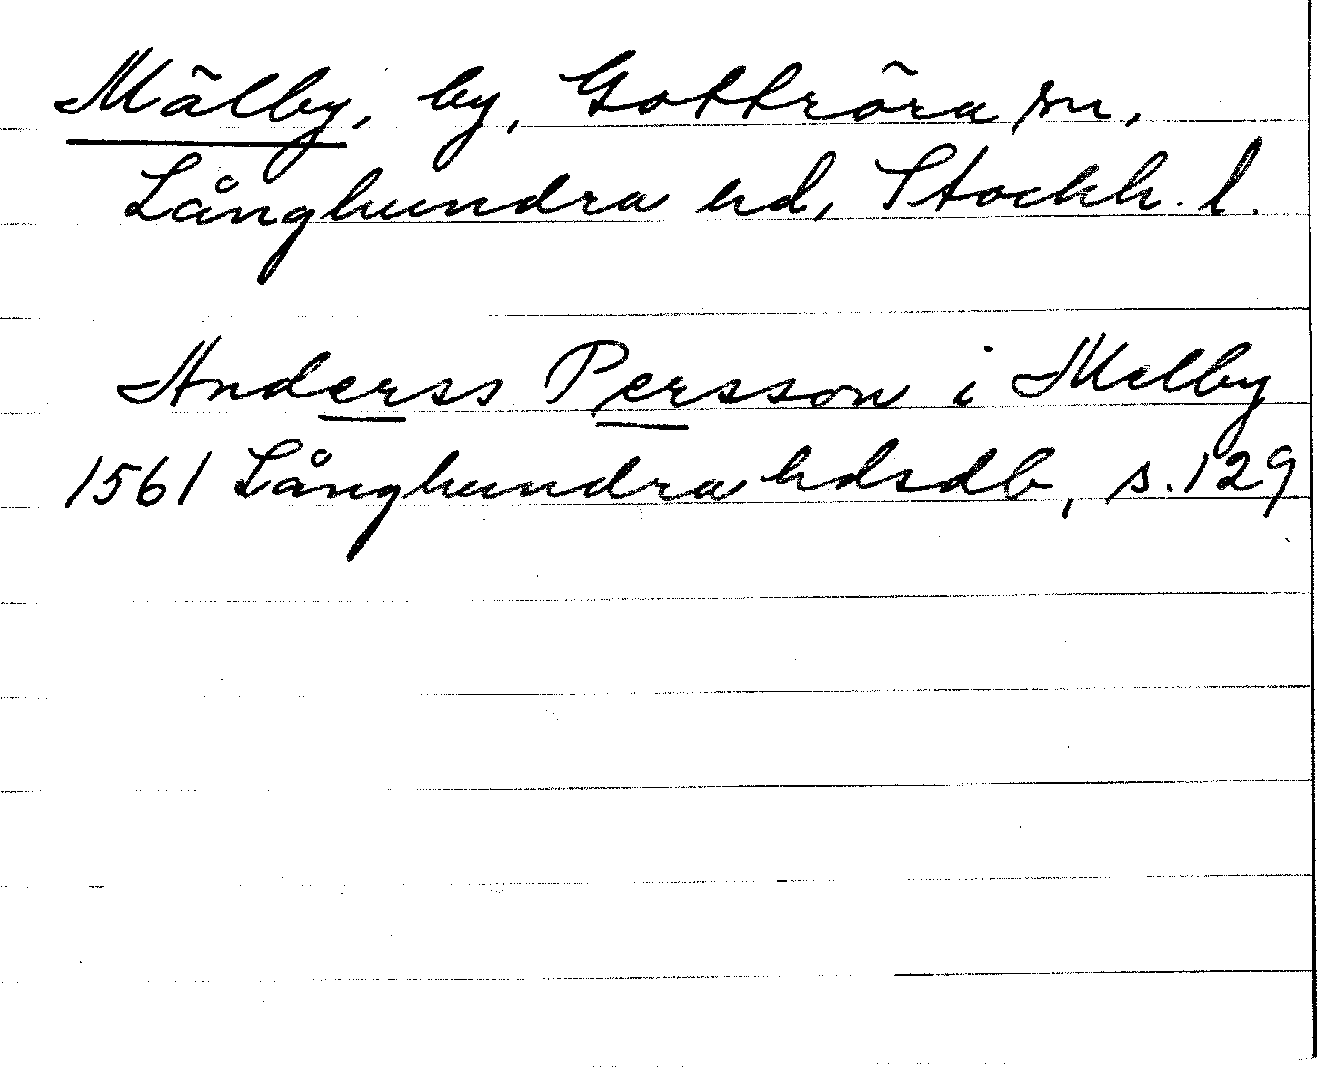 Mälby, by, Gottröra sn,
Långhundra hd, Stockh. l.
Anderss Persson i Melby
1561 Långhundra hdsdb, s. 129